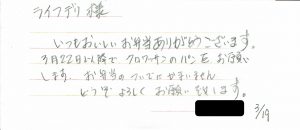 ライフデリ 様
いつもおいしいお弁当ありがとうございます。
3月22日以降で クロワーサンのパンを お願い
します。 お弁当のついでにかまいません
どうぞ よろしく お願い致します。
3/19